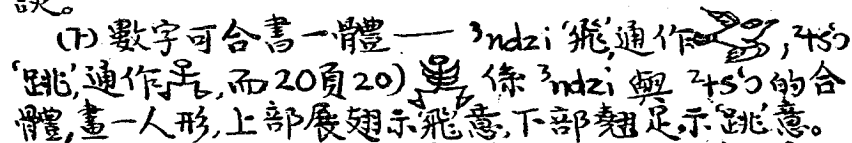 (7) 數字可合書一體 — ³ndzi ‘飛’, 通作 , ²ts‘ɔ
‘跳’, 通作 , 而20頁20) 係 ³ndzi 與 ²ts‘ɔ 的合
體, 畫一人形, 上部展翅示‘飛’意, 下部翹足示‘跳’意。